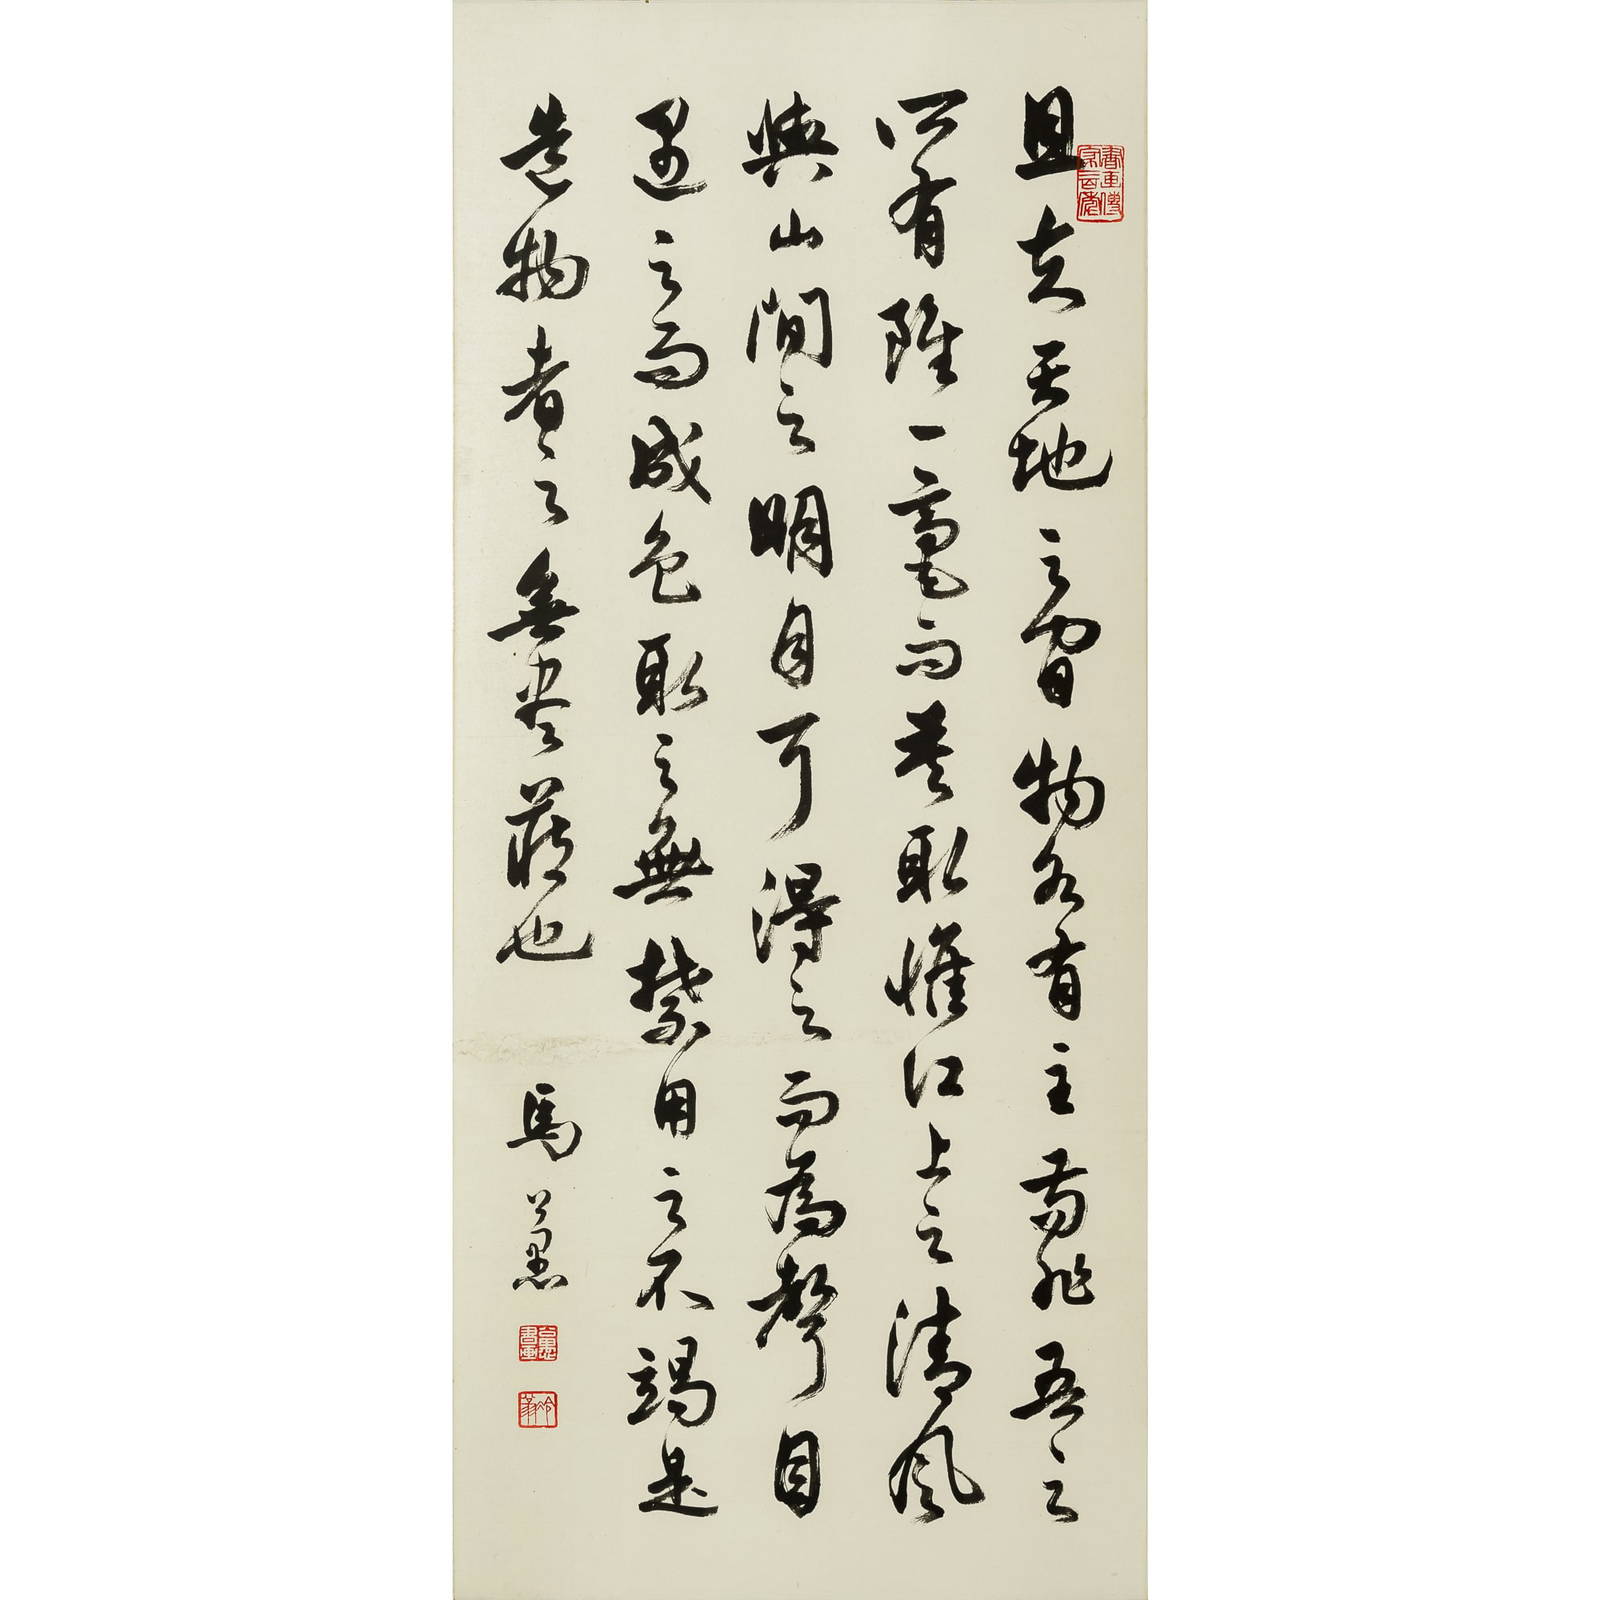 且夫天地之間物各有主苟非吾之
所有雖一毫而莫取惟江上之清風
與山間之明月耳得之而為聲目
遇之而成色取之無禁用之不竭是
造物者之無盡藏也
馬公愚
書畫傳家三百年
公愚書畫
冷篆